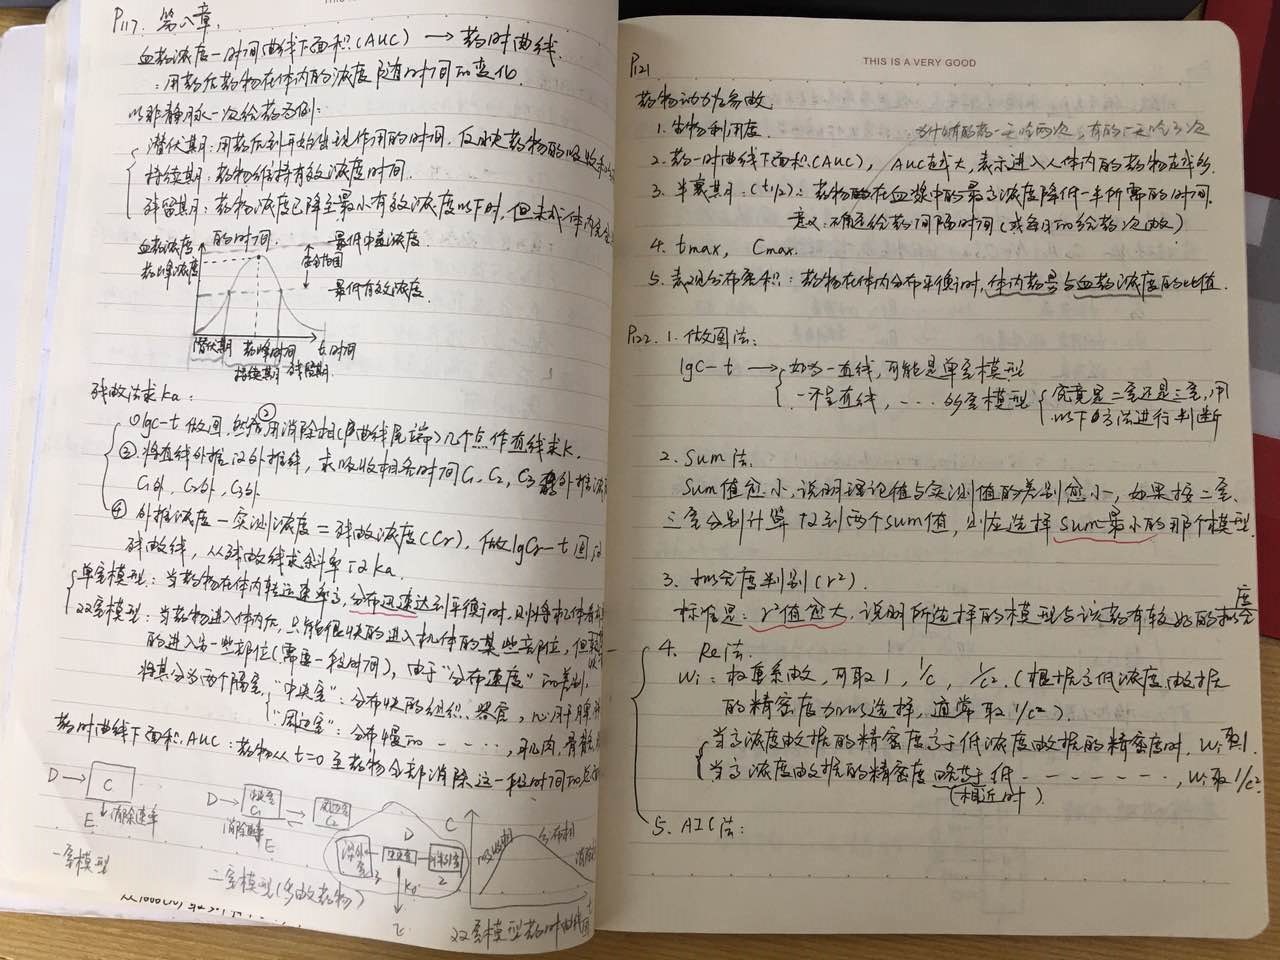 P117. 第八章.
血药浓度—时间曲线下面积(AUC) → 药时曲线.
: 用药后药物在体内的浓度随时间的变化.
以非静脉一次给药为例:
潜伏期: 用药后到开始出现作用的时间, 反映药物的吸收和
持续期: 药物维持有效浓度时间.
残留期: 药物浓度已降至最小有效浓度以下时, 但未从体内完全
的时间.
血药浓度
药峰浓度
最低中毒浓度.
安全范围
最低有效浓度.
潜伏期 药峰时间 t.时间
持续期 残留期.
残数法求ka:
① lgc-t 做图, ② 然后用消除相(即曲线尾端)几个点作直线求k.
③ 将直线外推得外推线, 求吸收相各时间C1, C2, C3 外推浓度
C1外, C2外, C3外
④ 外推浓度—实测浓度=残数浓度(Cr), 做lgCr-t图, 得
残数线, 从残数线求斜率得ka.
单室模型: 当药物在体内转运速率高, 分布迅速达到平衡时, 则将机体看
双室模型: 当药物进入体内后, 只能很快的进入机体的某些部位, 但
的进入另一些部位(需要一段时间), 由于“分布速度”的差别,
将其分为两个隔室, “中央室”: 分布快的组织、器官, 心肝脾肺
“周边室”: 分布慢的 - - - -, 肌肉, 骨骼,
药时曲线下面积. AUC: 药物从t=0至药物全部消除这一段时间的
D → C
E ↓消除速率
一室模型
D → 中央室 C1
周边室 C2
消除速率 E
二室模型(多数药物)
D C
中央室
2
吸收相 分布相
双室模型药时曲线图
THIS IS A VERY GOOD
P121
药物动力学参数.
1. 生物利用度. 为什么有的药一天吃两次, 有的一天吃3次
2. 药—时曲线下面积(AUC), AUC越大, 表示进入人体内的药物越多.
3. 半衰期: (t1/2): 药物在血浆中的最高浓度降低一半所需的时间.
意义: 确定给药间隔时间(或每日的给药次数)
4. tmax, Cmax.
5. 表观分布容积: 药物在体内分布平衡时, 体内药量与血药浓度的比值.
P122. 1. 做图法:
lgC-t → 如为一直线, 可能是单室模型
- 不呈直线, - - - 多室模型 { 究竟是二室还是三室, 用
以下方法进行判断
2. Sum法.
Sum值愈小, 说明理论值与实测值的差别愈小, 如果按二室、
三室分别计算得到两个sum值, 则应选择sum最小的那个模型.
3. 拟合度判别(r²).
标准是: r²值愈大, 说明所选择的模型与该药有较好的拟合度
4. Re法.
Wi: 权重系数, 可取1, 1/c, 1/c². (根据高低浓度数据
的精密度加以选择, 通常取1/c²).
当高浓度数据的精密度高于低浓度数据的精密度时, Wi取1.
当高浓度数据的精密度略等于低 - - - - - - -, Wi取1/c².
(相近时)
5. AIC法: